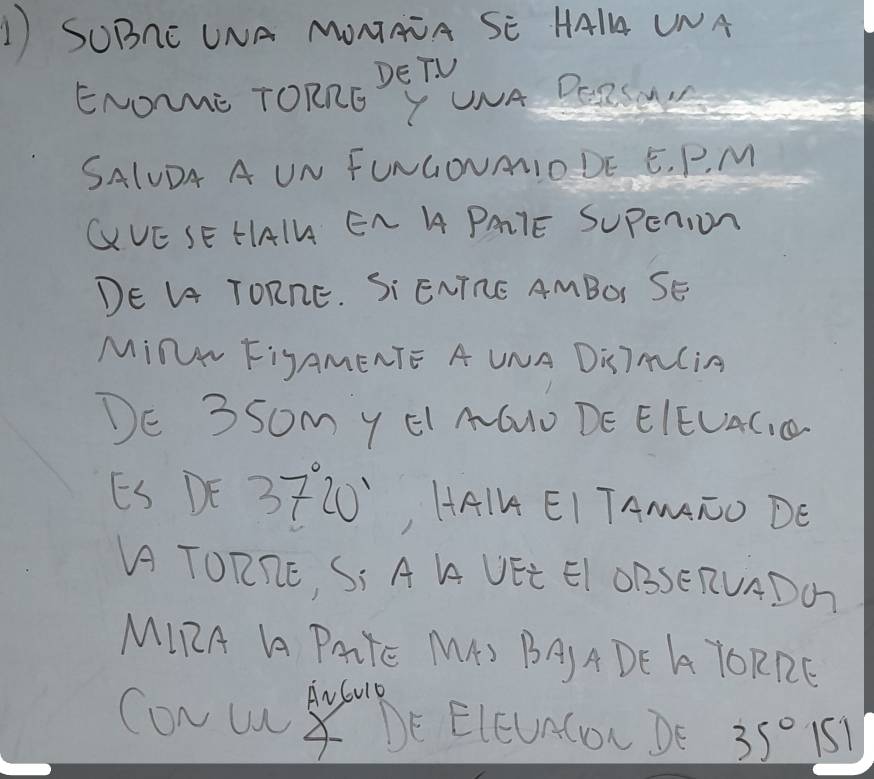 1) SOBRE UNA MONTAÑA SE HALLA UNA
ENORME TORRE DE TV Y UNA PERSONA
SALUDA A UN FUNCIONARIO DE E.P.M
QUE SE HALLA EN LA PARTE SUPERIOR
DE LA TORRE. Si ENTRE AMBOS SE
MiRAN FiJAMENTE A UNA DiSTANCiA
DE 350m y El ANGULO DE ElEVACiO
ES DE 37°20', HAllA El TAMAÑO DE
LA TORRE, Si A LA VEZ El OBSERVADOR
MIRA LA PARTE MAS BAJA DE LA TORRE
CON UN ÁNGULO ∡ DE ElEVACION DE 35°15'